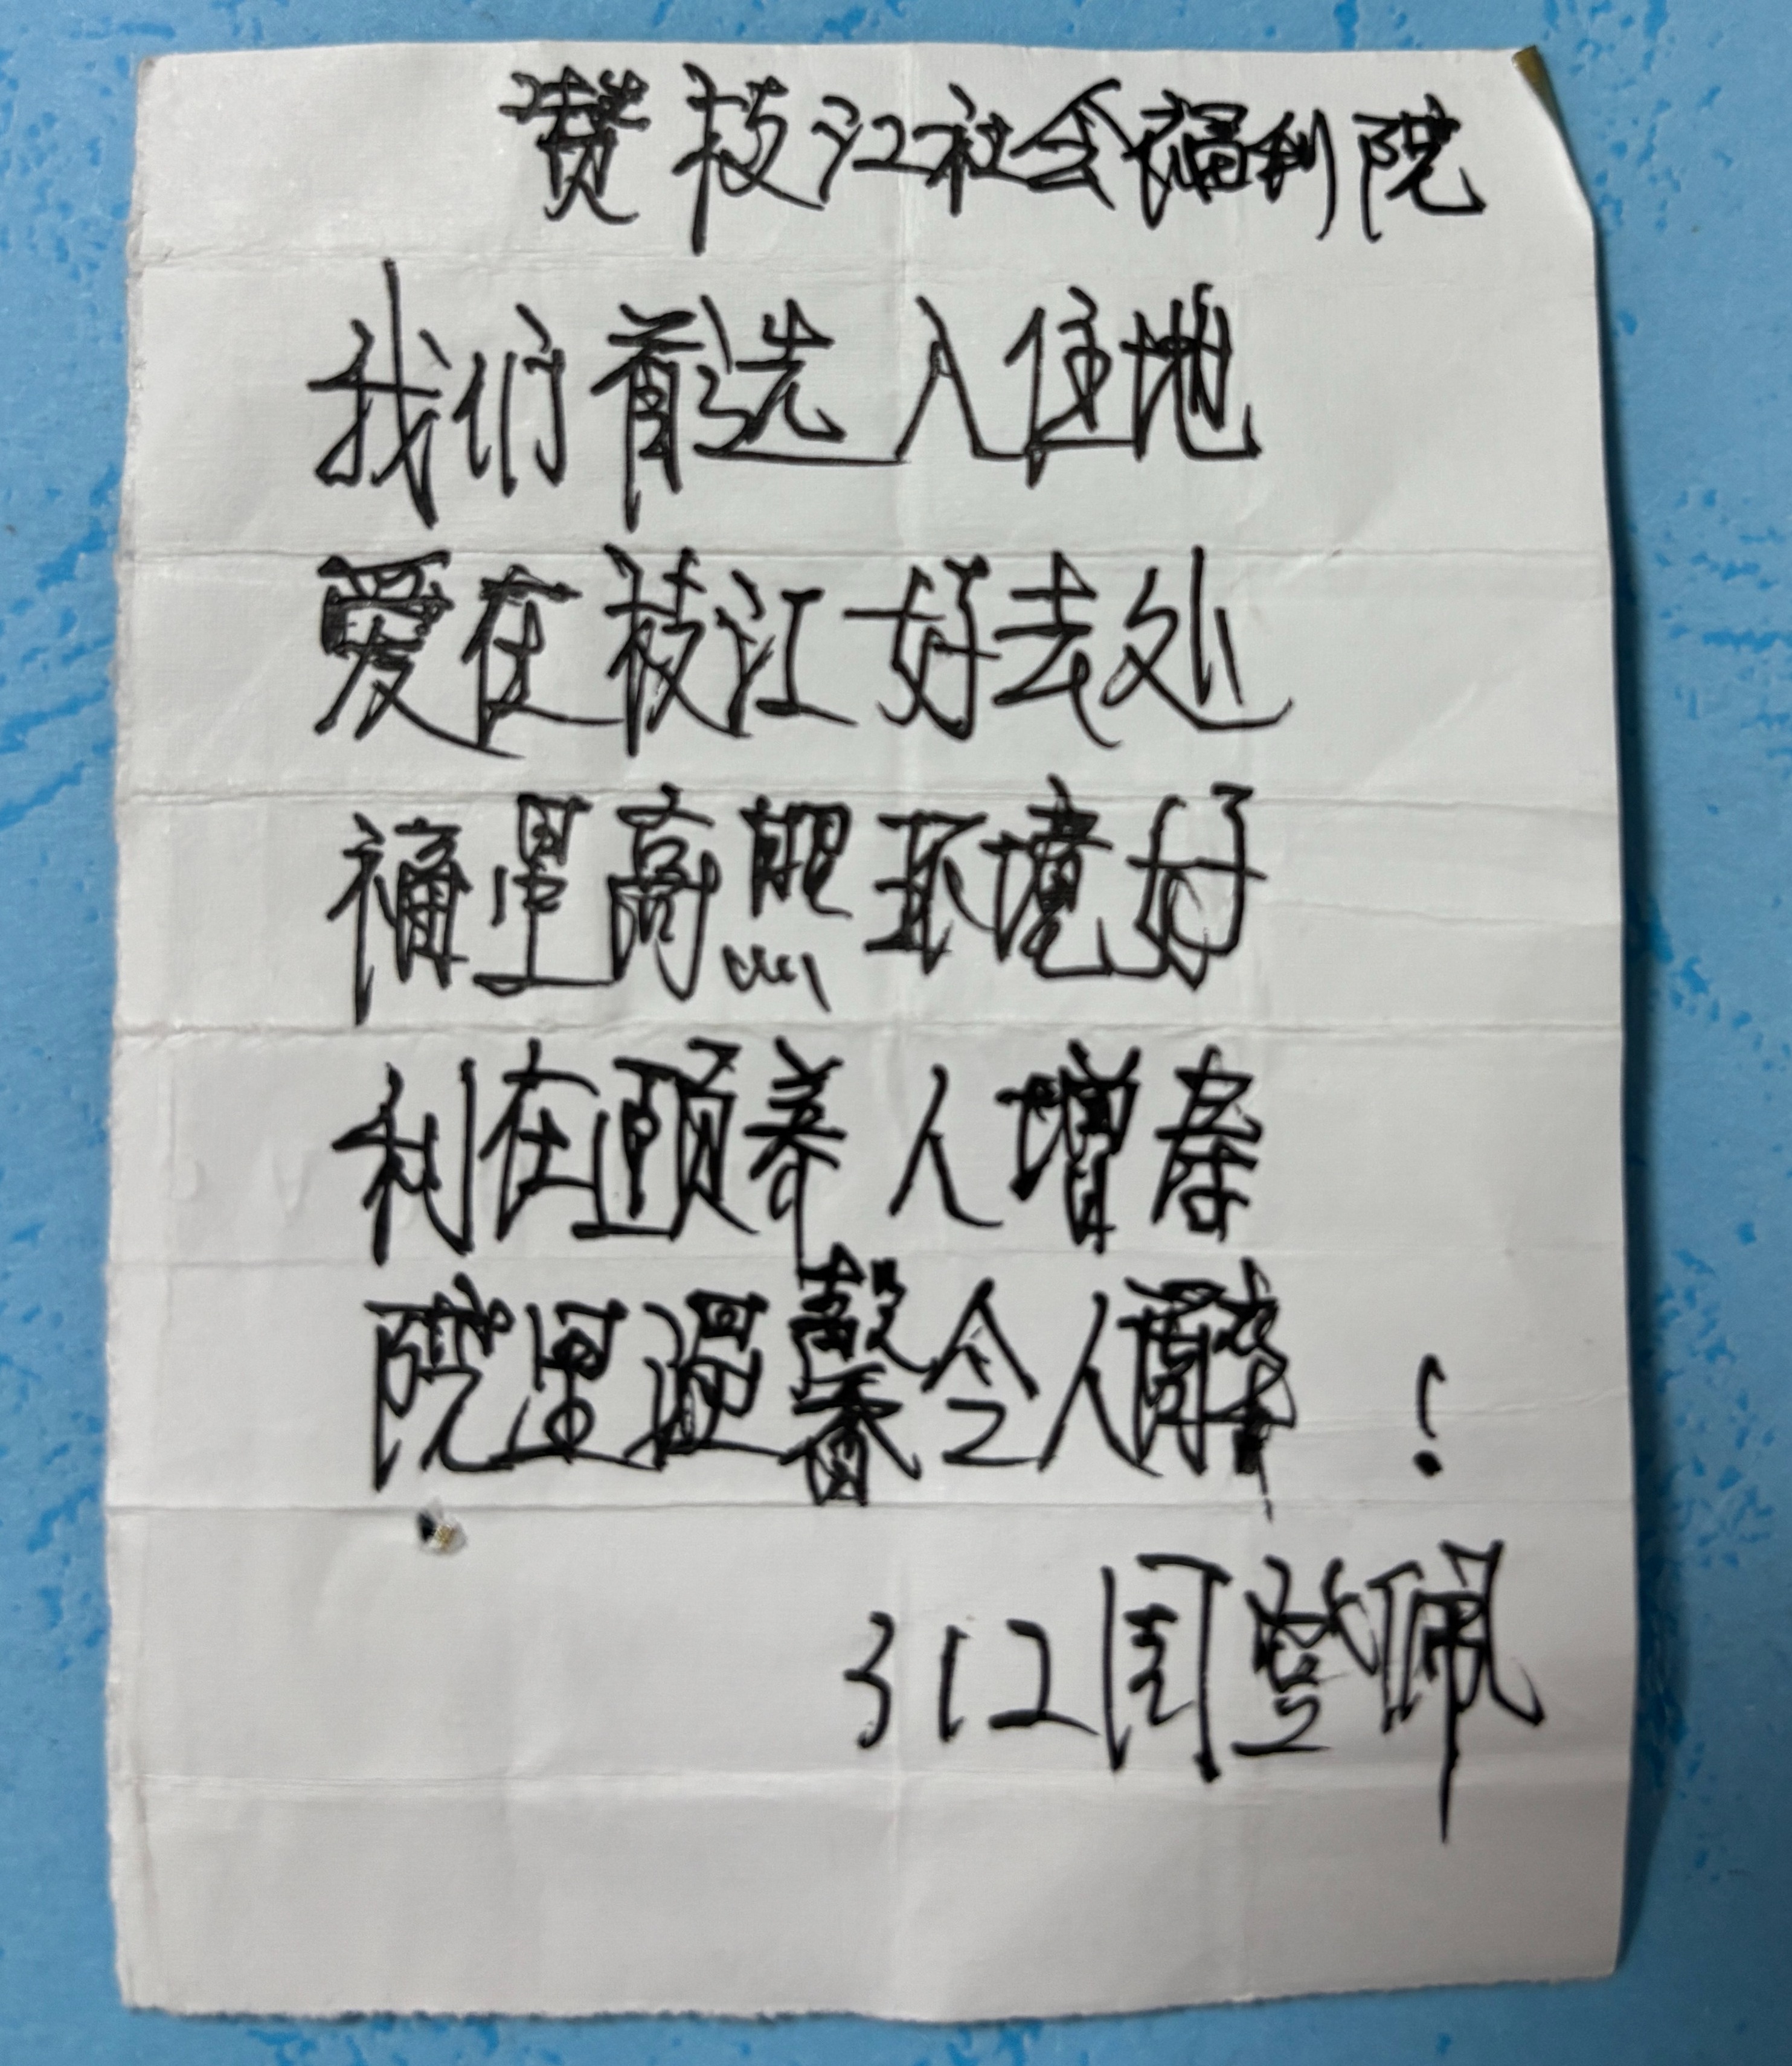 赞枝江社会福利院
我们首选入住地
爱在枝江好去处
福星高照环境好
利在颐养人增寿
院里温馨令人醉！
312周登佩